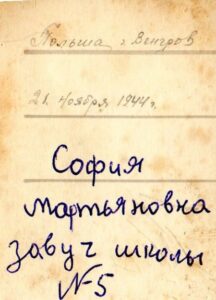 Польша г Венгров
21. ноября 1944 г.
София
Мартьяновна
завуч школы
№5